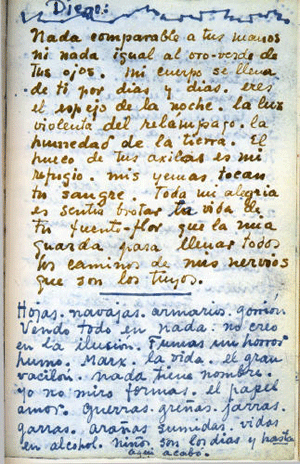 Diego:
Nada comparable a tus manos
ni nada igual al oro-verde de
tus ojos. Mi cuerpo se llena
de ti por días y días. eres
el espejo de la noche. la luz
violenta del relámpago. la
humedad de la tierra. El
hueco de tus axilas es mi
refugio. mis yemas tocan
tu sangre. Toda mi alegría
es sentir brotar la vida de
tu fuente-flor que la mia
guarda para llenar todos
los caminos de mis nervios
que son los tuyos.
Hojas. navajas. armarios. gorrión
Vendo todo en nada. no creo
en la ilusión. Fumas un horror
humo. Marx. la vida. el gran
vacilón. nada tiene nombre.
yo no miro formas. el papel
amor. guerras. greñas. jarras.
garras. arañas sumidas. vidas
en alcohol. niños son los días y hasta
aqui acabo.